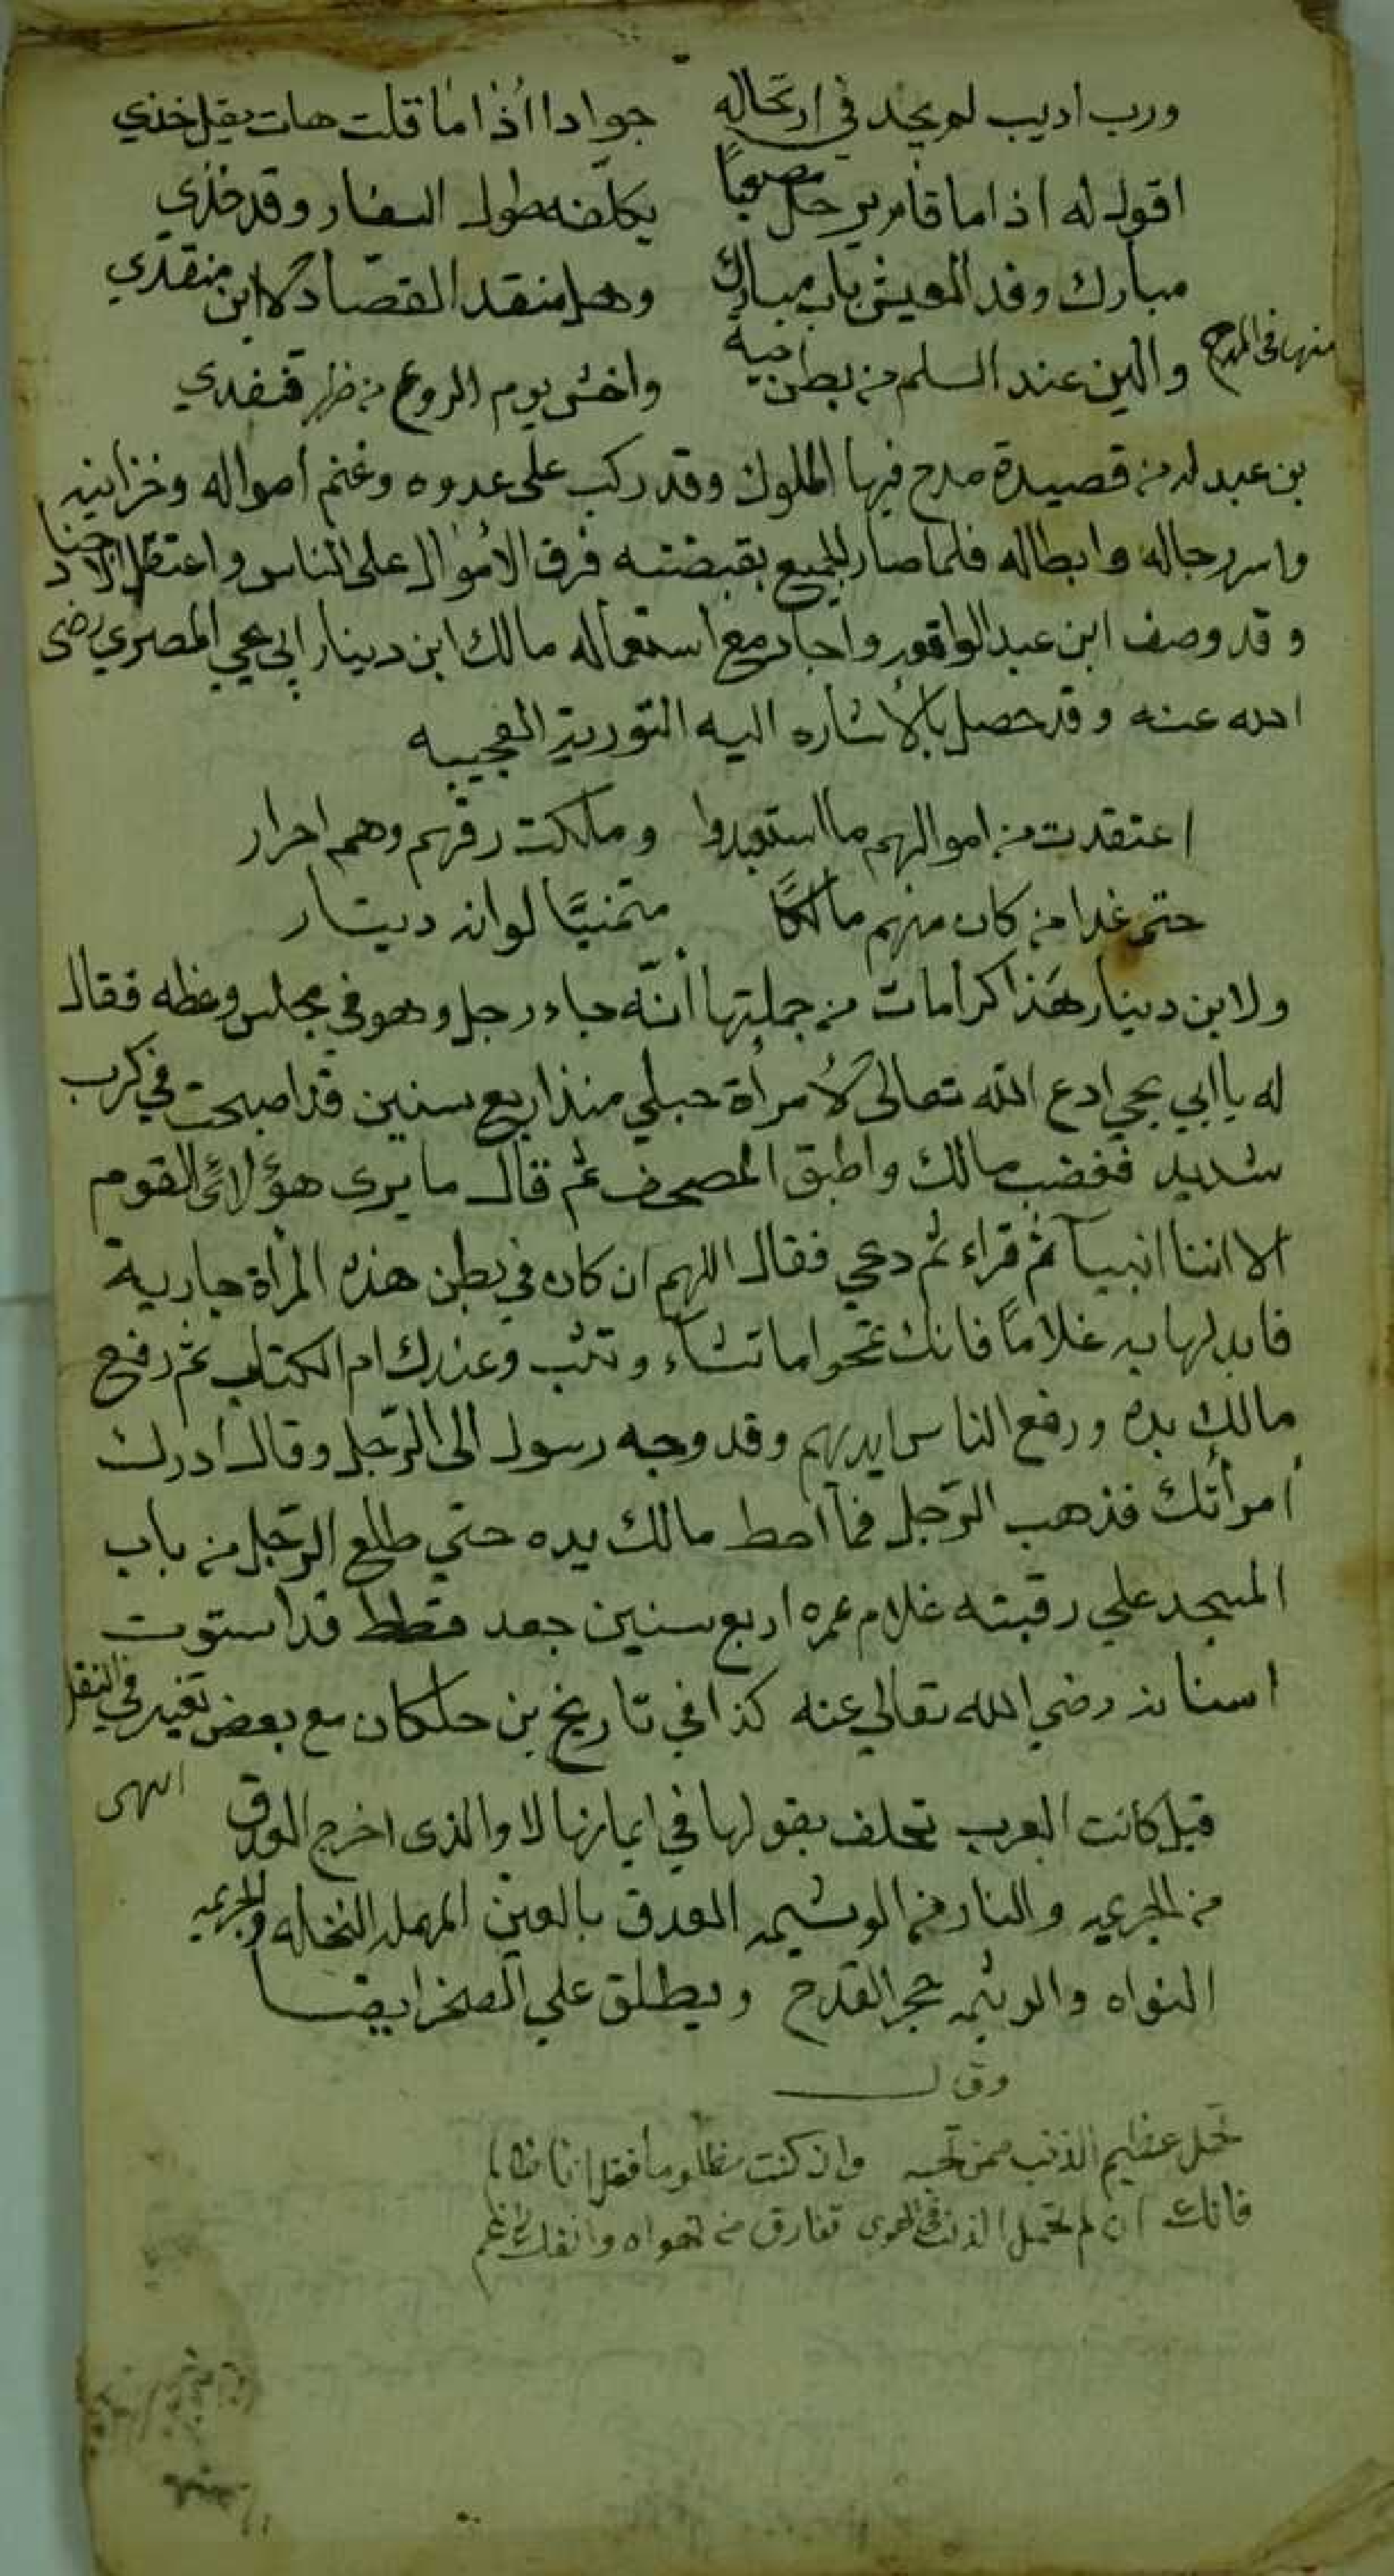 ورب اديب لم يجد في ارتحاله جوادا اذا ما قلت هات يقل خذي
اقول له اذا ما قام يرحل مصبحا يكلفه طول السفار وقد خذي
مبارك وفد العيش باب مبارك وهل منقذ القصاد لابن منقذي
منها في المدح والين عند السلم من بطن حية واخشى يوم الروع من ظهر قنفدي
بن عبد له من قصيدة مدح فيها الملوك وقد ركب على عدوه وغنم امواله وخزاينه
واسر رجاله وابطاله فلما صار الجميع بقبضته فرق الاموال على الناس واعتقل
وقد وصف ابن عبد الواقور واجاد مع استعماله مالك ابن دينار ابي يحيي المصري رضى
الله عنه وقد حصل بالاشاره اليه التورية العجيبه
اعتقدت من اموالهم ما استعبدوا وملكت رقهم وهم احرار
حتى غدا من كان منهم مالكًا متمنيًا لوانه دينار
ولابن دينار هذا كرامات من جملتها انّه جاء رجل وهو في مجلس وعظه فقال
له يا ابي يحي ادع الله تعالى لامرأة حبلي منذ اربع سنين قد اصبحت في كرب
شديد فغضب مالك واطبق المصحف ثم قال ما يرى هؤلائ القوم
الا اننا انبيآ ثم قراء ثم دعي فقال اللهم ان كان في بطن هذه المرأة جارية
فابدلها به غلامًا فانك تمحوا ما تشاء وتثب وعندك ام الكتاب ثم رفع
مالك يده ورفع الناس ايديهم وقد وجه رسول الى الرّجل وقال ادرك
امرأتك فذهب الرّجل فما احط مالك يده حتي طلع الرّجل من باب
المسجد علي رقبته غلام عمره اربع سنين جعد قطط قد استوت
اسنانه رضي الله تعالي عنه كذا في تاريخ بن حلكان مع بعض تغير في النقل
انتهى
قيل كانت العرب تحلف بقولها في ايمانها لا والذى اخرج العدق
من الجريمه والنار من الوشيمه العدق بالعين المهمله النخله والجريمه
النواه والوثيمه حجر القدح ويطلق علي الصخر ايضا
وقال
تحمل عظيم الذنب ممن تحبه وان كنت مظلوما فقل انا ظالم
فانك ان لم تحتمل الذنب في الهوى تفارق من تهواه وانفك راغم